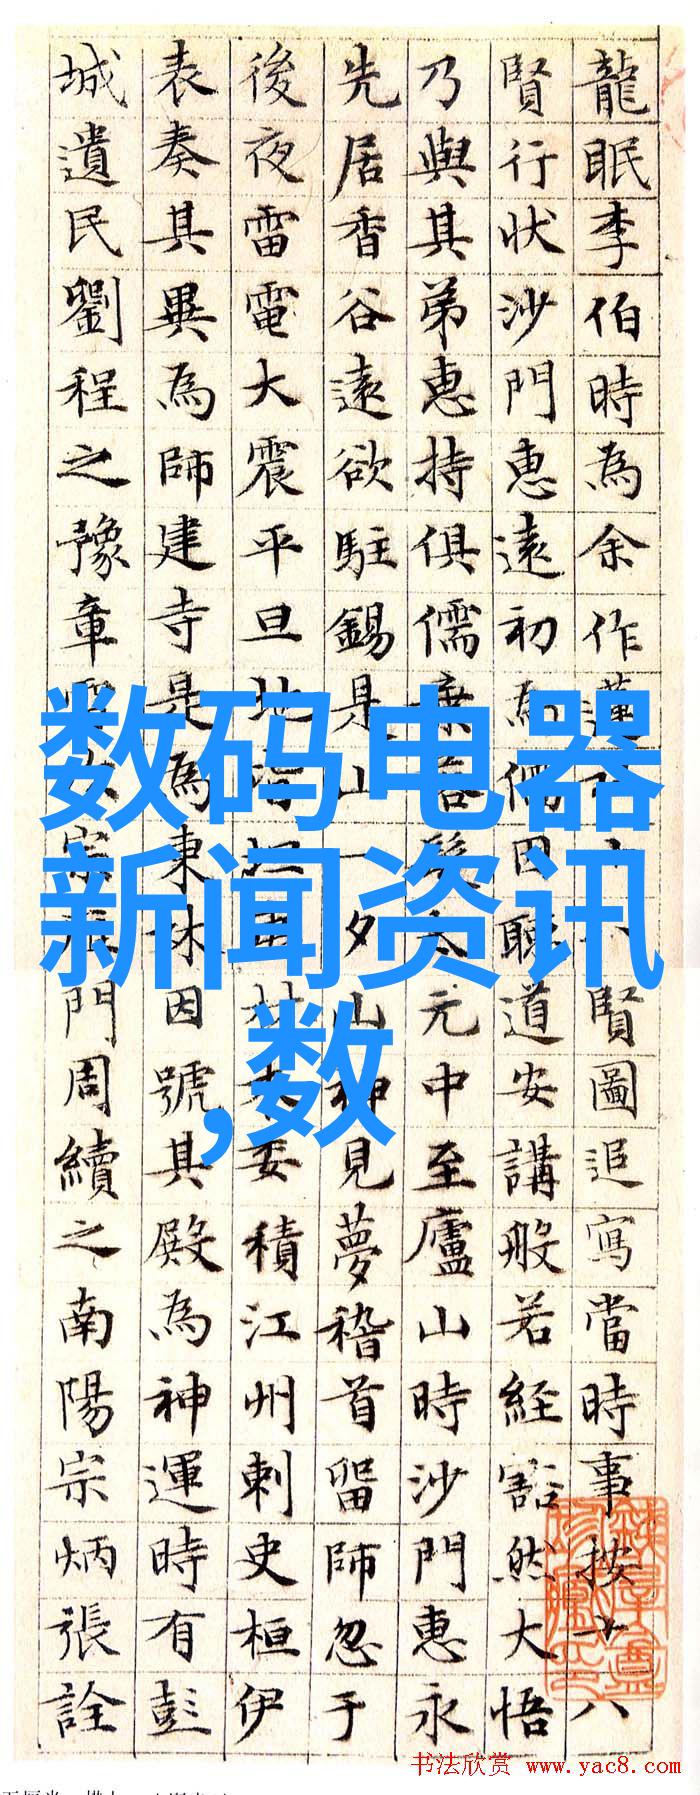 龍眠李伯時為余作蓮賢圖追寫當時事按十八
賢行狀沙門惠遠初為儒因聽道安講般若經豁然大悟
乃與其弟惠持俱儒太元中至廬山時沙門惠永
先居香谷遠欲駐錫是山一夕山神見夢稽首留師忽于
後夜雷電大震平旦地材木委積江州刺史桓伊
表奏其異為師建寺是為東林因號其殿為神運時有彭
城遺民劉程之豫章宗門周續之南陽宗炳張詮
数码电器
新闻资讯
,数
书法欣赏 www.yac8.com